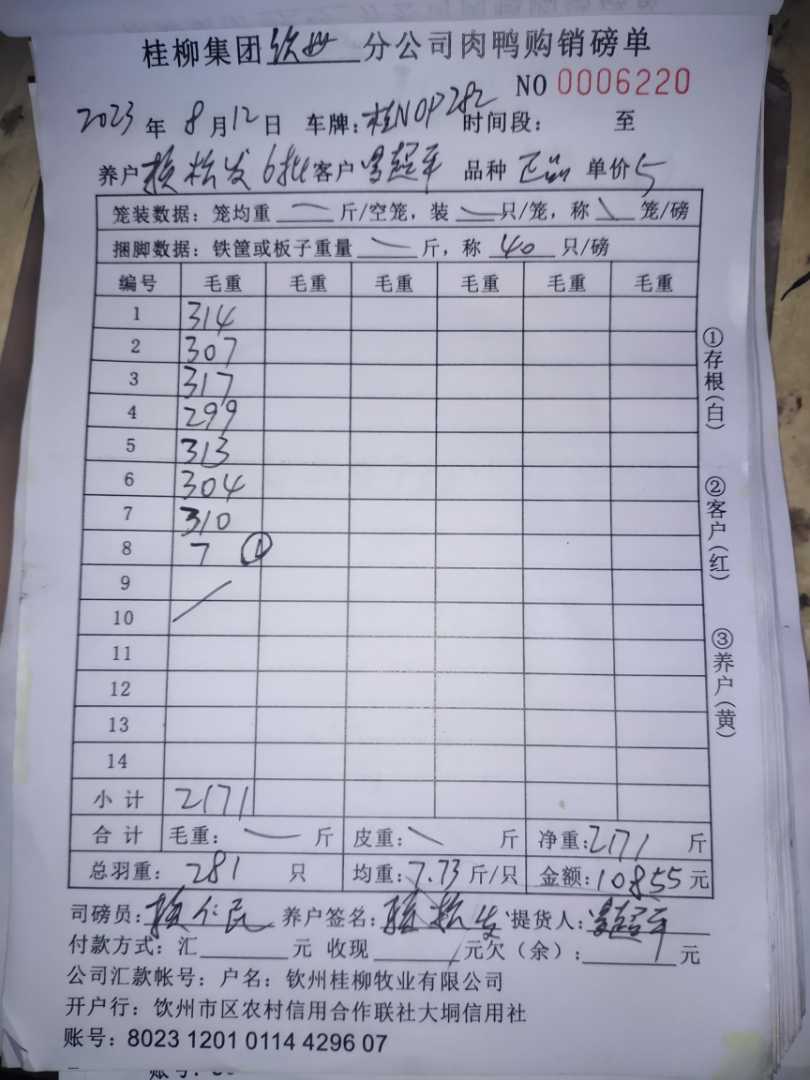 桂柳集团钦州分公司肉鸭购销磅单
NO 0006220
2023年8月12日 车牌:桂NOP282 时间段: 至
养户 松发 6批 客户 超平 品种 正品 单价 5
笼装数据:笼均重 斤/空笼,装 只/笼,称 笼/磅
捆脚数据:铁筐或板子重量 斤,称 40 只/磅
编号 毛重 毛重 毛重 毛重 毛重 毛重
1 314
2 307
3 317
4 299
5 313
6 304
7 310
8 7 ①
9
10
11
12
13
14
小计 2171
合计 毛重: 斤 皮重: 斤 净重:2171 斤
总羽重: 281 只 均重:7.73 斤/只 金额:10855 元
司磅员: 仁民 养户签名: 松发 提货人: 超平
付款方式:汇 元 收现 元欠(余): 元
公司汇款帐号:户名:钦州桂柳牧业有限公司
开户行:钦州市区农村信用合作联社大垌信用社
账号:8023 1201 0114 4296 07
①存根(白)
②客户(红)
③养户(黄)